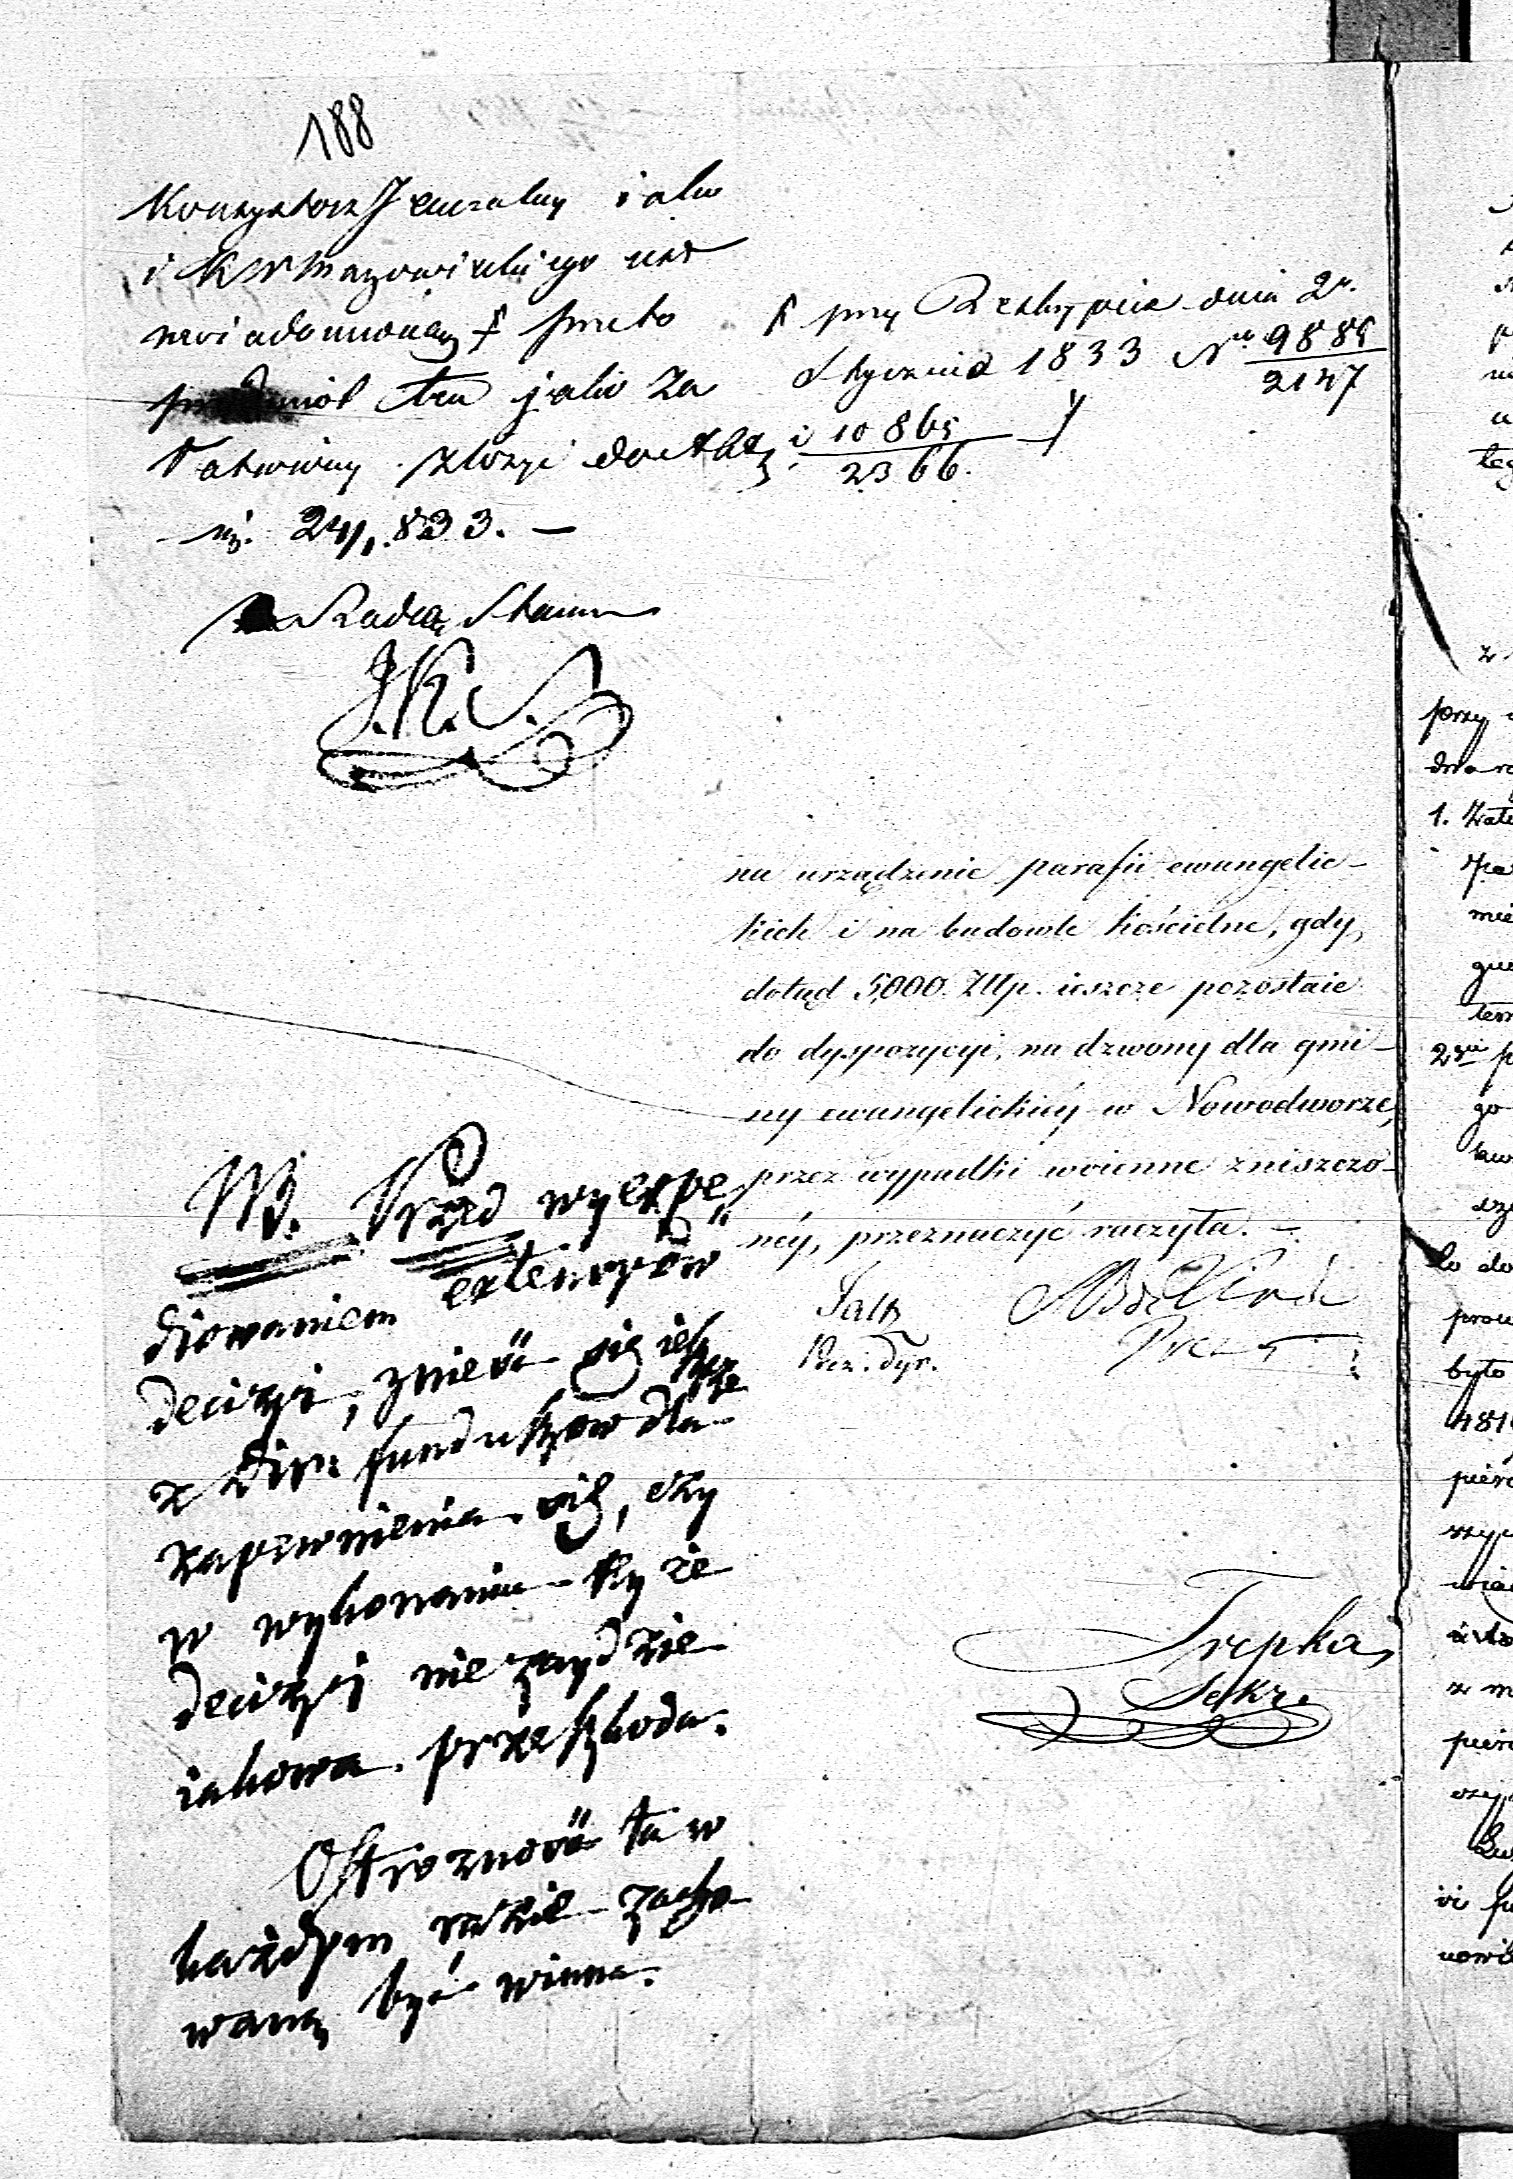 188
Konsystorz Jeneralny iako
i KW Mazowieckiego uż
zawiadomiony ƒ przeto
przedmiot ten jako za
łatwiony złożyć do Akt
24/1. 833. —
Radca Stanu
J. K. S.
ƒ przy Reskrypcie dnia 2.
Stycznia 1833 No 9885/2147
i 10865/2366.
na urządzenie parafii ewangelic-
kich i na budowle kościelne, gdy
dotąd 5,000. Złłp. ieszcze pozostaie
do dyspozycyi, na dzwony dla gmi-
ny ewangelickiéy w Nowodworze,
przez wypadki woienne zniszczo-
néy, przeznaczyć raczyła. —
Prez
Trepka,
Sekr.
Przed wyexpe
diowaniem extensyów
decizyi, znieść się ieszcze
z Dir: funduszow dla
zapewnienia się, czy
w wykonaniu tyże
decizyi nie zaydzie
iakowa przeszkoda.
Ostrozność ta w
każdym razie zacho
waną być winna.